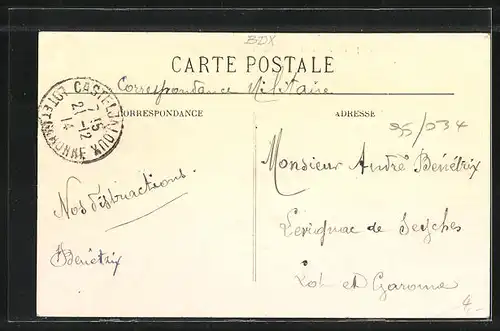 BDX
CARTE POSTALE
Correspondance Militaire
CORRESPONDANCE
ADRESSE
CASTELJALOUX
7 15
21 -12
14
LOT-ET-GARONNE
95/034
Monsieur André Bénétrix
Nos distractions.
Levignac de Seyches
Bénétrix
Lot et Garonne